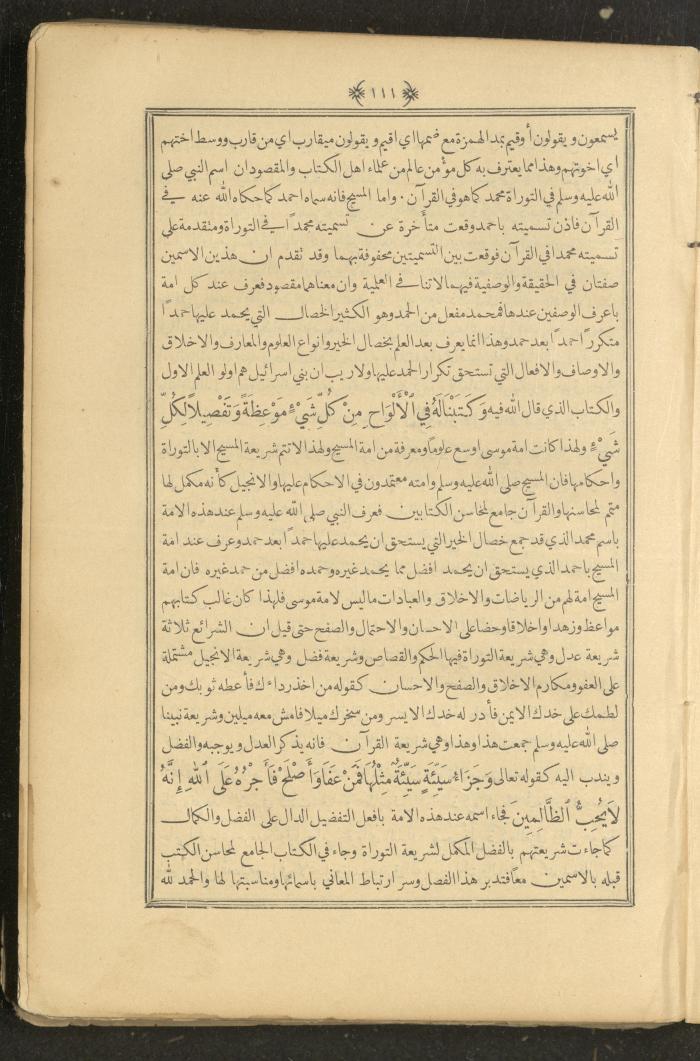 ١١١
يسمعون ويقولون أوقيم بمد الهمزة مع ضمها اي اقيم ويقولون ميقارب اي من قارب ووسط اختهم
اي اخوتهم وهذا مما يعترف به كل مؤمن عالم من علماء اهل الكتاب والمقصود ان اسم النبي صلى
الله عليه وسلم في التوراة محمد كما هو في القرآن. واما المسيح فانه سماه احمد كما حكاه الله عنه في
القرآن فاذن تسميته باحمد وقعت متأخرة عن تسميته محمداً في التوراة ومتقدمة على
تسميته محمدا في القرآن فوقعت بين التسميتين محفوفة بهما وقد تقدم ان هذين الاسمين
صفتان في الحقيقة والوصفية فيهما لا تنافي العلمية وان معناهما مقصود فعرف عند كل امة
باعرف الوصفين عندها فمحمد مفعل من الحمد وهو الكثير الخصال التي يحمد عليها حمداً
متكرراً حمداً بعد حمد وهذا انما يعرف بعد العلم بخصال الخير وانواع العلوم والمعارف والاخلاق
والاوصاف والافعال التي تستحق تكرار الحمد عليها ولا ريب ان بني اسرائيل هم اولو العلم الاول
والكتاب الذي قال الله فيه وَكَتَبْنَا لَهُ فِي الْأَلْوَاحِ مِنْ كُلِّ شَيْءٍ مَوْعِظَةً وَتَفْصِيلاً لِكُلِّ
شَيْءٍ ولهذا كانت امة موسى اوسع علوما ومعرفة من امة المسيح ولهذا لا تتم شريعة المسيح الا بالتوراة
واحكامها فان المسيح صلى الله عليه وسلم وامته معتمدون في الاحكام عليها والانجيل كأنه مكمل لها
متمم لمحاسنها والقرآن جامع لمحاسن الكتابين فعرف النبي صلى الله عليه وسلم عند هذه الامة
باسم محمد الذي قد جمع خصال الخير التي يستحق ان يحمد عليها حمداً بعد حمد وعرف عند امة
المسيح باحمد الذي يستحق ان يحمد افضل مما يحمد غيره وحمده افضل من حمد غيره فان امة
المسيح امة لهم من الرياضات والاخلاق والعبادات ما ليس لامة موسى فلهذا كان غالب كتابهم
مواعظ وزهدا واخلاقا وحضا على الاحسان والاحتمال والصفح حتى قيل ان الشرائع ثلاثة
شريعة عدل وهي شريعة التوراة فيها الحكم والقصاص وشريعة فضل وهي شريعة الانجيل مشتملة
على العفو ومكارم الاخلاق والصفح والاحسان كقوله من اخذ رداءك فأعطه ثوبك ومن
لطمك على خدك الايمن فأدر له خدك الايسر ومن سخرك ميلا فامش معه ميلين وشريعة نبينا
صلى الله عليه وسلم جمعت هذا وهذا وهي شريعة القرآن فانه يذكر العدل ويوجبه والفضل
ويندب اليه كقوله تعالى وَجَزَاءُ سَيِّئَةٍ سَيِّئَةٌ مِثْلُهَا فَمَنْ عَفَا وَأَصْلَحَ فَأَجْرُهُ عَلَى اللهِ إِنَّهُ
لَا يُحِبُّ الظَّالِمِينَ فجاء اسمه عند هذه الامة بافعل التفضيل الدال على الفضل والكمال
كما جاءت شريعتهم بالفضل المكمل لشريعة التوراة وجاء في الكتاب الجامع لمحاسن الكتب
قبله بالاسمين معاً فتدبر هذا الفصل وسر ارتباط المعاني باسمائها ومناسبتها لها والحمد لله